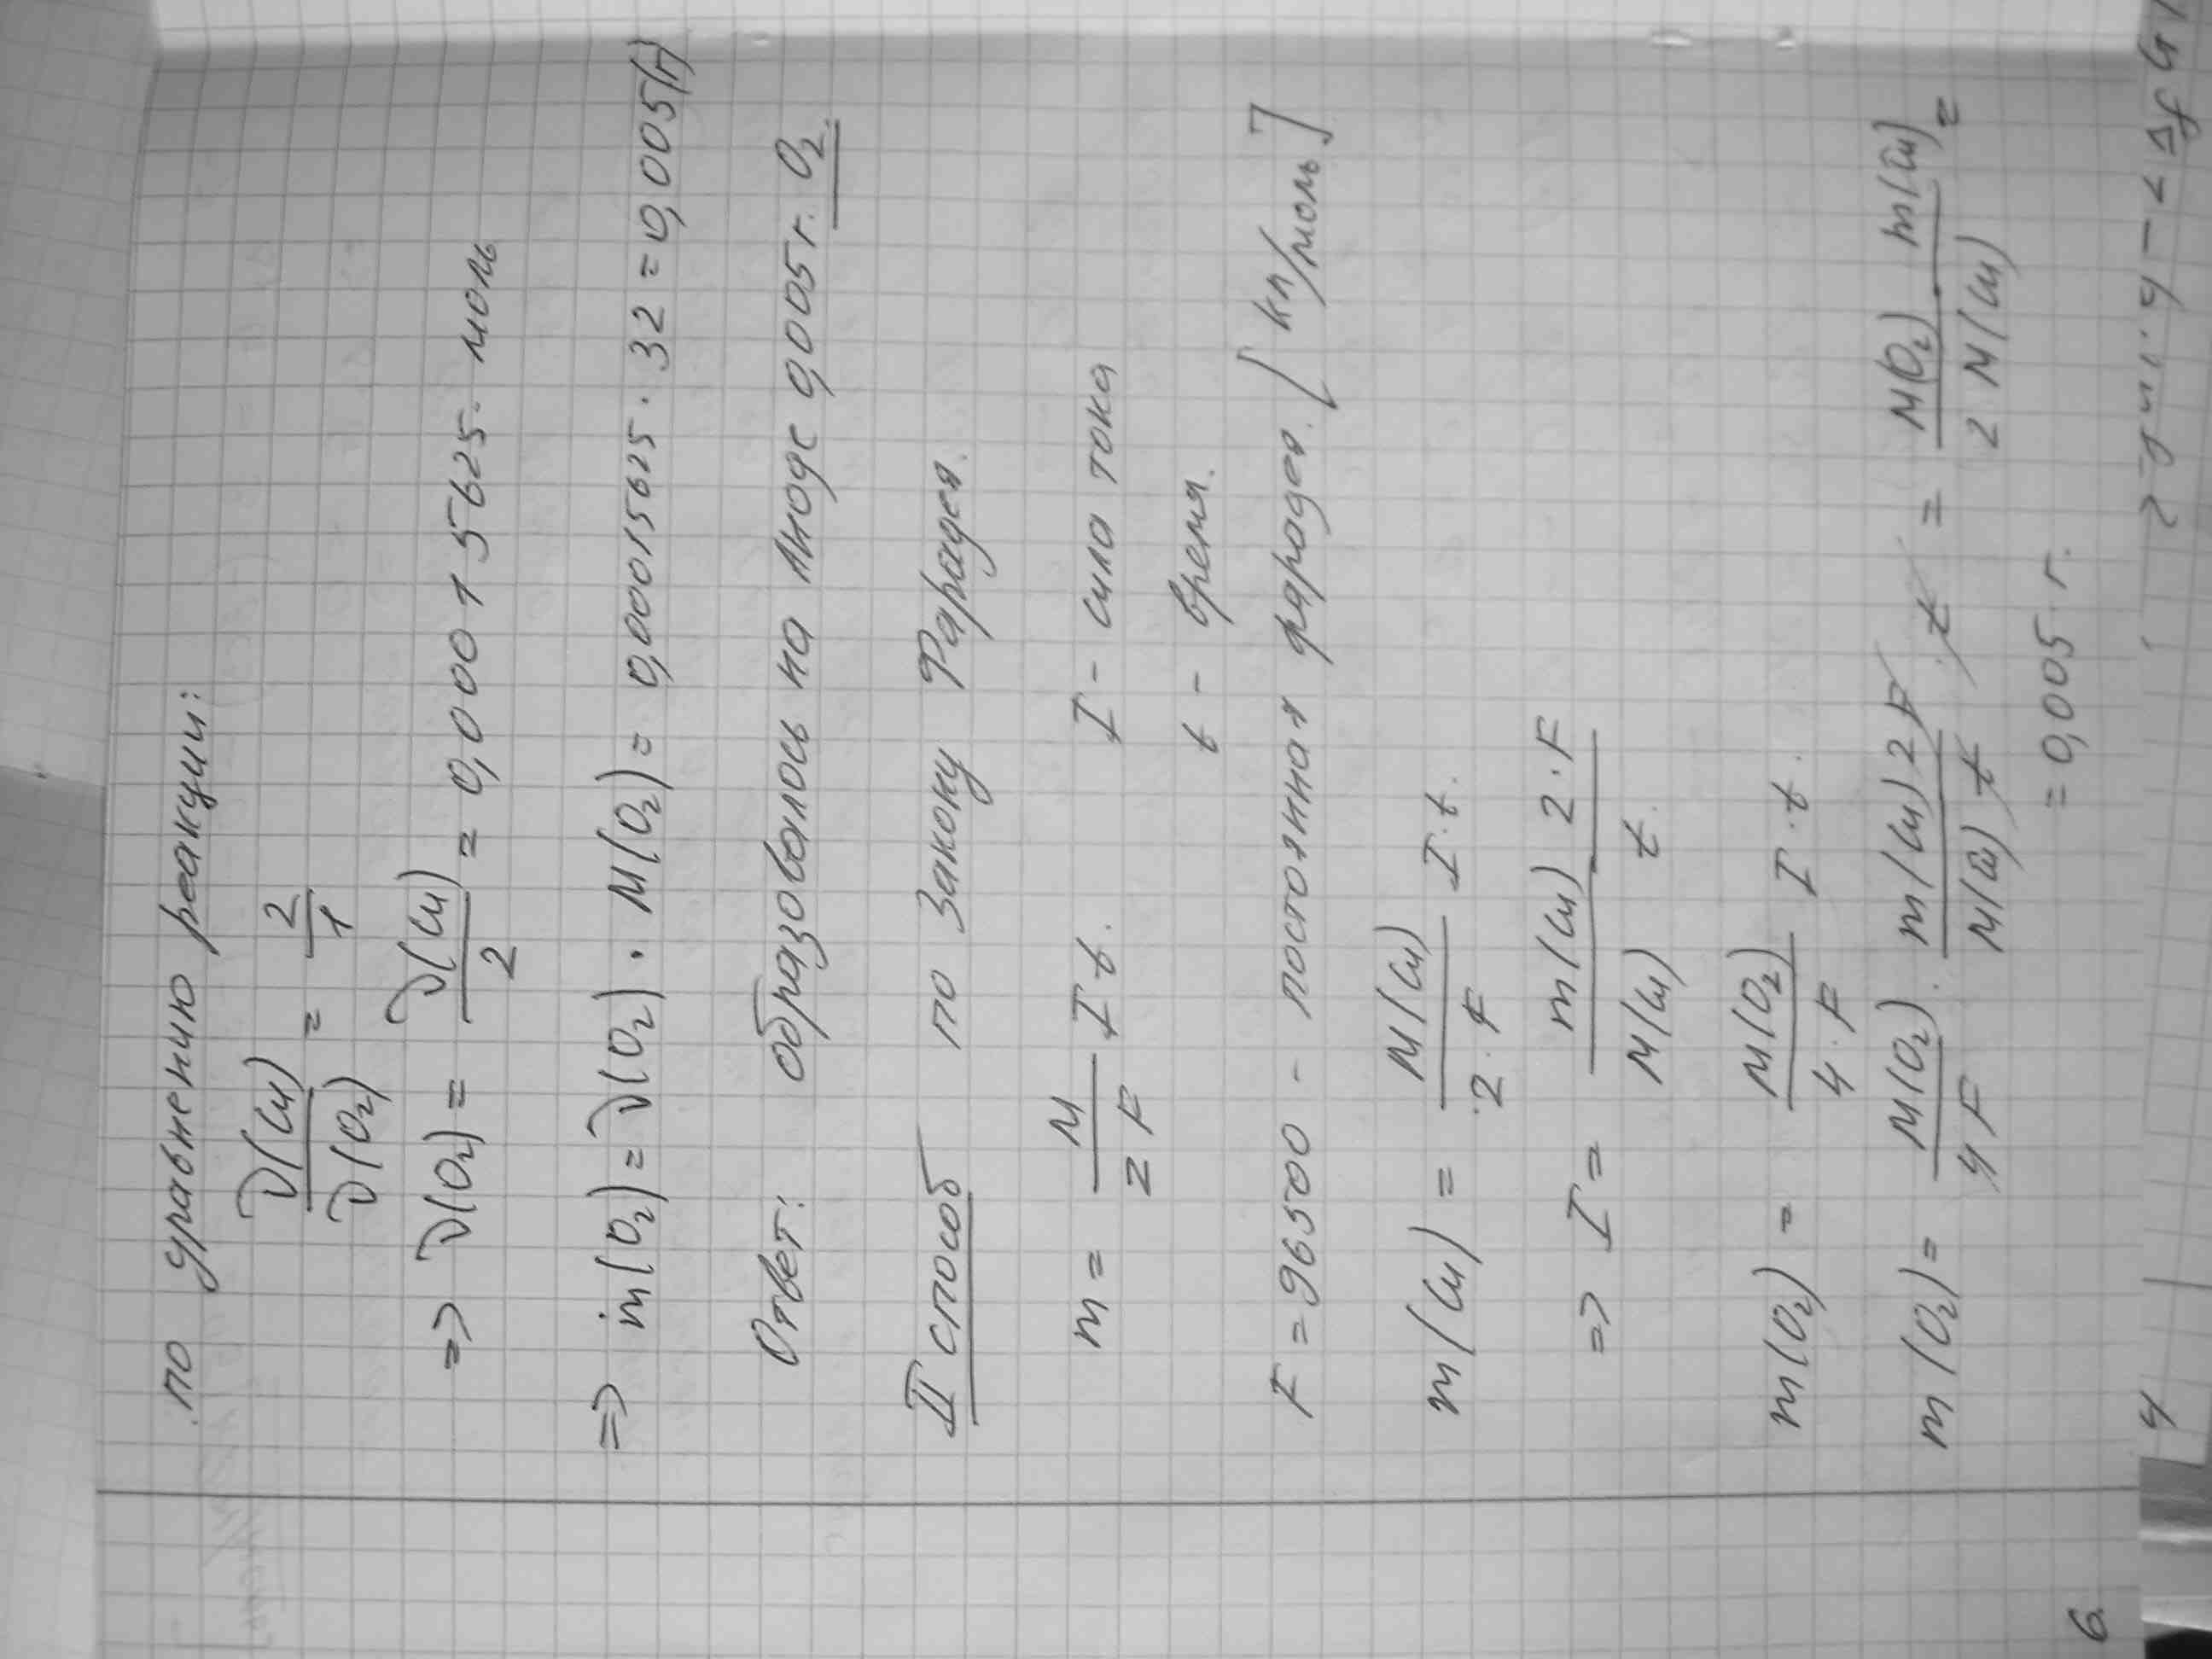 по уравнению реакции:
ν(Cu)/ν(O₂) = 2/1
=> ν(O₂) = ν(Cu)/2 = 0,00015625 моль
=> m(O₂) = ν(O₂) · M(O₂) = 0,00015625 · 32 = 0,005(г)
Ответ: образовалось на Аноде 0,005 г. O₂
II способ по Закону Фарадея.
m = M/zF I t. I - сила тока
t - время.
F = 96500 - постоянная фарадея. [кл/моль]
m(Cu) = M(Cu)/2·F I·t.
=> I = m(Cu) 2·F/M(Cu) t.
m(O₂) = M(O₂)/4·F I·t.
m(O₂) = M(O₂)/4F · m(Cu) 2F/M(Cu) t · t = M(O₂) · m(Cu)/2 M(Cu) =
= 0,005 г.
6.
4